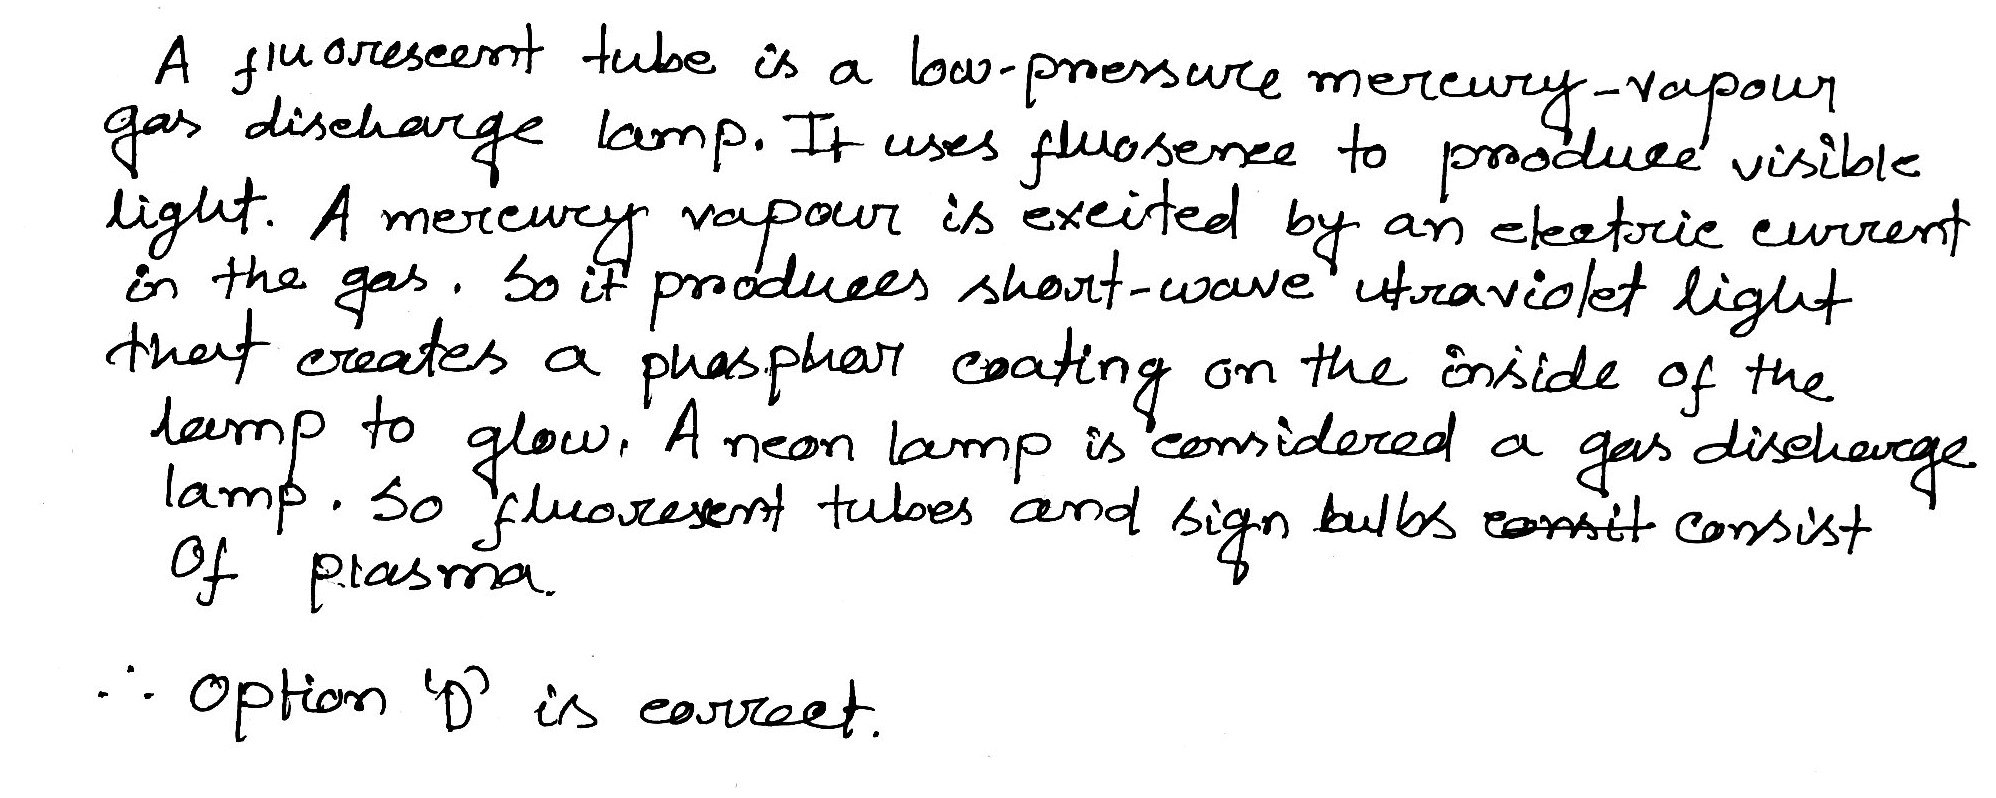 A fluorescent tube is a low-pressure mercury-vapour
gas discharge lamp. It uses fluosence to produce visible
light. A mercury vapour is excited by an electric current
in the gas. So it produces short-wave utraviolet light
that creates a phosphor coating on the inside of the
lamp to glow. A neon lamp is considered a gas discharge
lamp. So fluoresent tubes and sign bulbs consit consist
Of plasma.
∴ Option 'D' is correct.